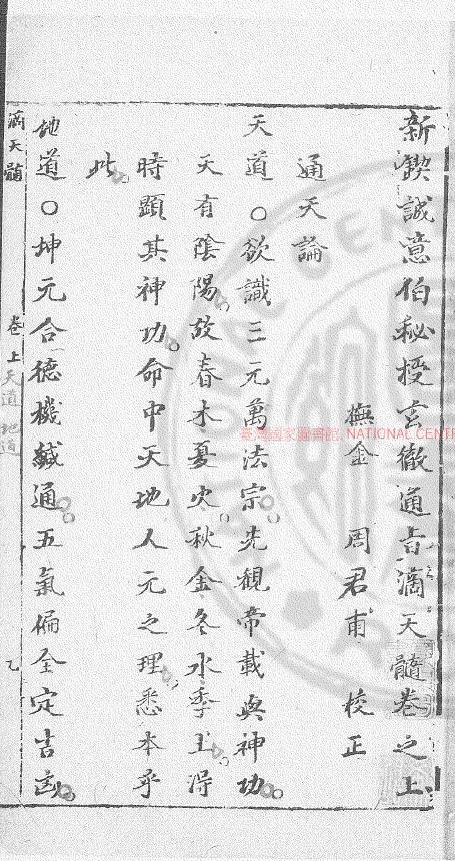 新鍥誠意伯秘授玄徹通旨滴天髓卷之上
撫金 周君甫 校正
通天論
天道○欲識三元萬法宗先觀帝載與神功
天有陰陽故春木夏火秋金冬水季土得
時顯其神功命中天地人元之理悉本乎
此
地道○坤元合德機緘通五氣偏全定吉凶
滴天髓 卷上 天道 地道 乙
臺灣國家圖書館, NATIONAL CENT